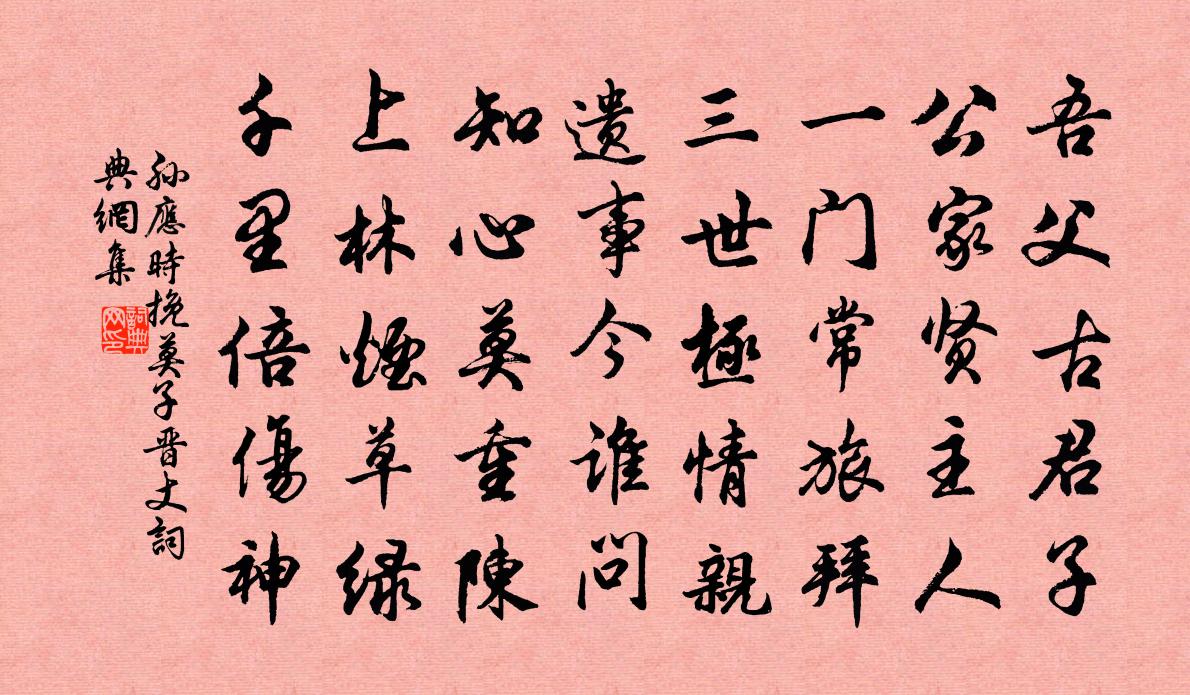 吾父古君子
公家贤主人
一门常旅拜
三世極情親
遗事今谁问
知心莫重陳
上林煙草绿
千里倍傷神
孙應時挽莫子晋丈詞
典網集
詞典网印